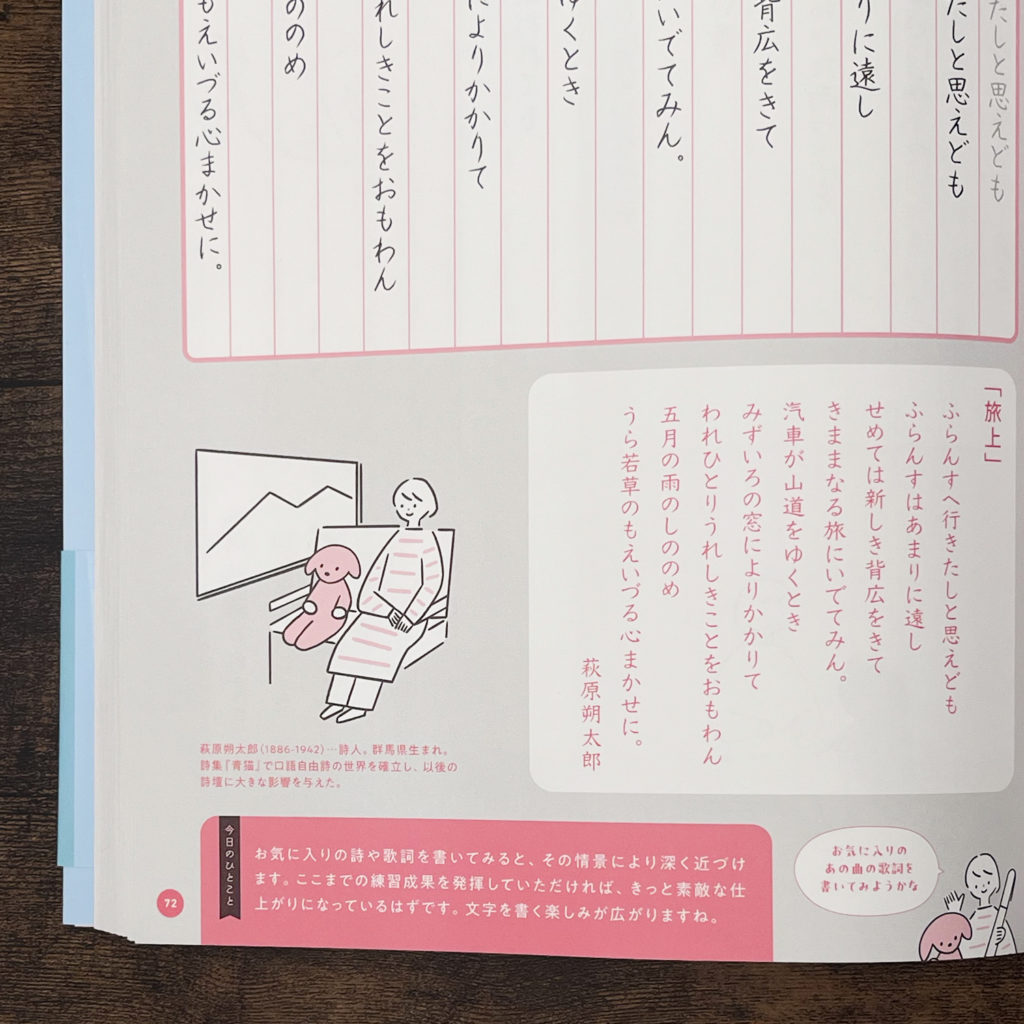 たしと思えども
たしと思えども
りに遠し
背広をきて
いでてみん。
ゆくとき
によりかかりて
れしきことをおもわん
ののめ
もえいづる心まかせに。
「旅上」
ふらんすへ行きたしと思えども
ふらんすはあまりに遠し
せめては新しき背広をきて
きままなる旅にいでてみん。
汽車が山道をゆくとき
みずいろの窓によりかかりて
われひとりうれしきことをおもわん
五月の雨のしののめ
うら若草のもえいづる心まかせに。
萩原朔太郎
萩原朔太郎(1886-1942)…詩人。群馬県生まれ。
詩集『青猫』で口語自由詩の世界を確立し、以後の
詩壇に大きな影響を与えた。
今日のひとこと
お気に入りの詩や歌詞を書いてみると、その情景により深く近づけ
ます。ここまでの練習成果を発揮していただければ、きっと素敵な仕
上がりになっているはずです。文字を書く楽しみが広がりますね。
お気に入りの
あの曲の歌詞を
書いてみようかな
72